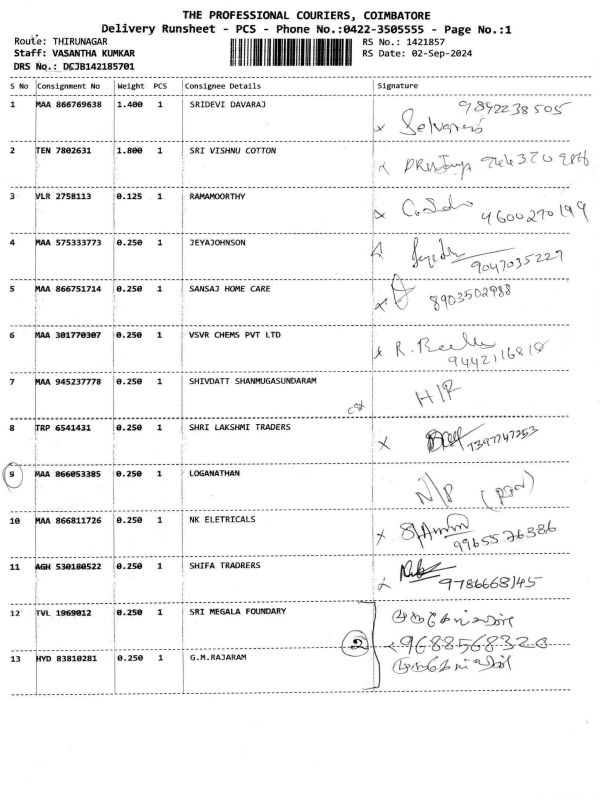 THE PROFESSIONAL COURIERS, COIMBATORE
Delivery Runsheet - PCS - Phone No.:0422-3505555 - Page No.:1
Route: THIRUNAGAR RS No.: 1421857
Staff: VASANTHA KUMKAR RS Date: 02-Sep-2024
DRS No.: DCJB142185701
S No Consignment No Weight PCS Consignee Details Signature
1 MAA 866769638 1.400 1 SRIDEVI DAVARAJ 9842238505
x
2 TEN 7802631 1.800 1 SRI VISHNU COTTON
x
3 VLR 2758113 0.125 1 RAMAMOORTHY
x 9600270199
4 MAA 575333773 0.250 1 JEYAJOHNSON
9047035227
5 MAA 866751714 0.250 1 SANSAJ HOME CARE
x 8903502988
6 MAA 301770307 0.250 1 VSVR CHEMS PVT LTD
x R.
9442116818
7 MAA 945237778 0.250 1 SHIVDATT SHANMUGASUNDARAM
H/R
8 TRP 6541431 0.250 1 SHRI LAKSHMI TRADERS
x 7397747253
9 MAA 866053385 0.250 1 LOGANATHAN
N/P
10 MAA 866811726 0.250 1 NK ELETRICALS
x 9965576386
11 AGH 530180522 0.250 1 SHIFA TRADRERS
x 9786668145
12 TVL 1969012 0.250 1 SRI MEGALA FOUNDARY
2 9688568320
13 HYD 83810281 0.250 1 G.M.RAJARAM